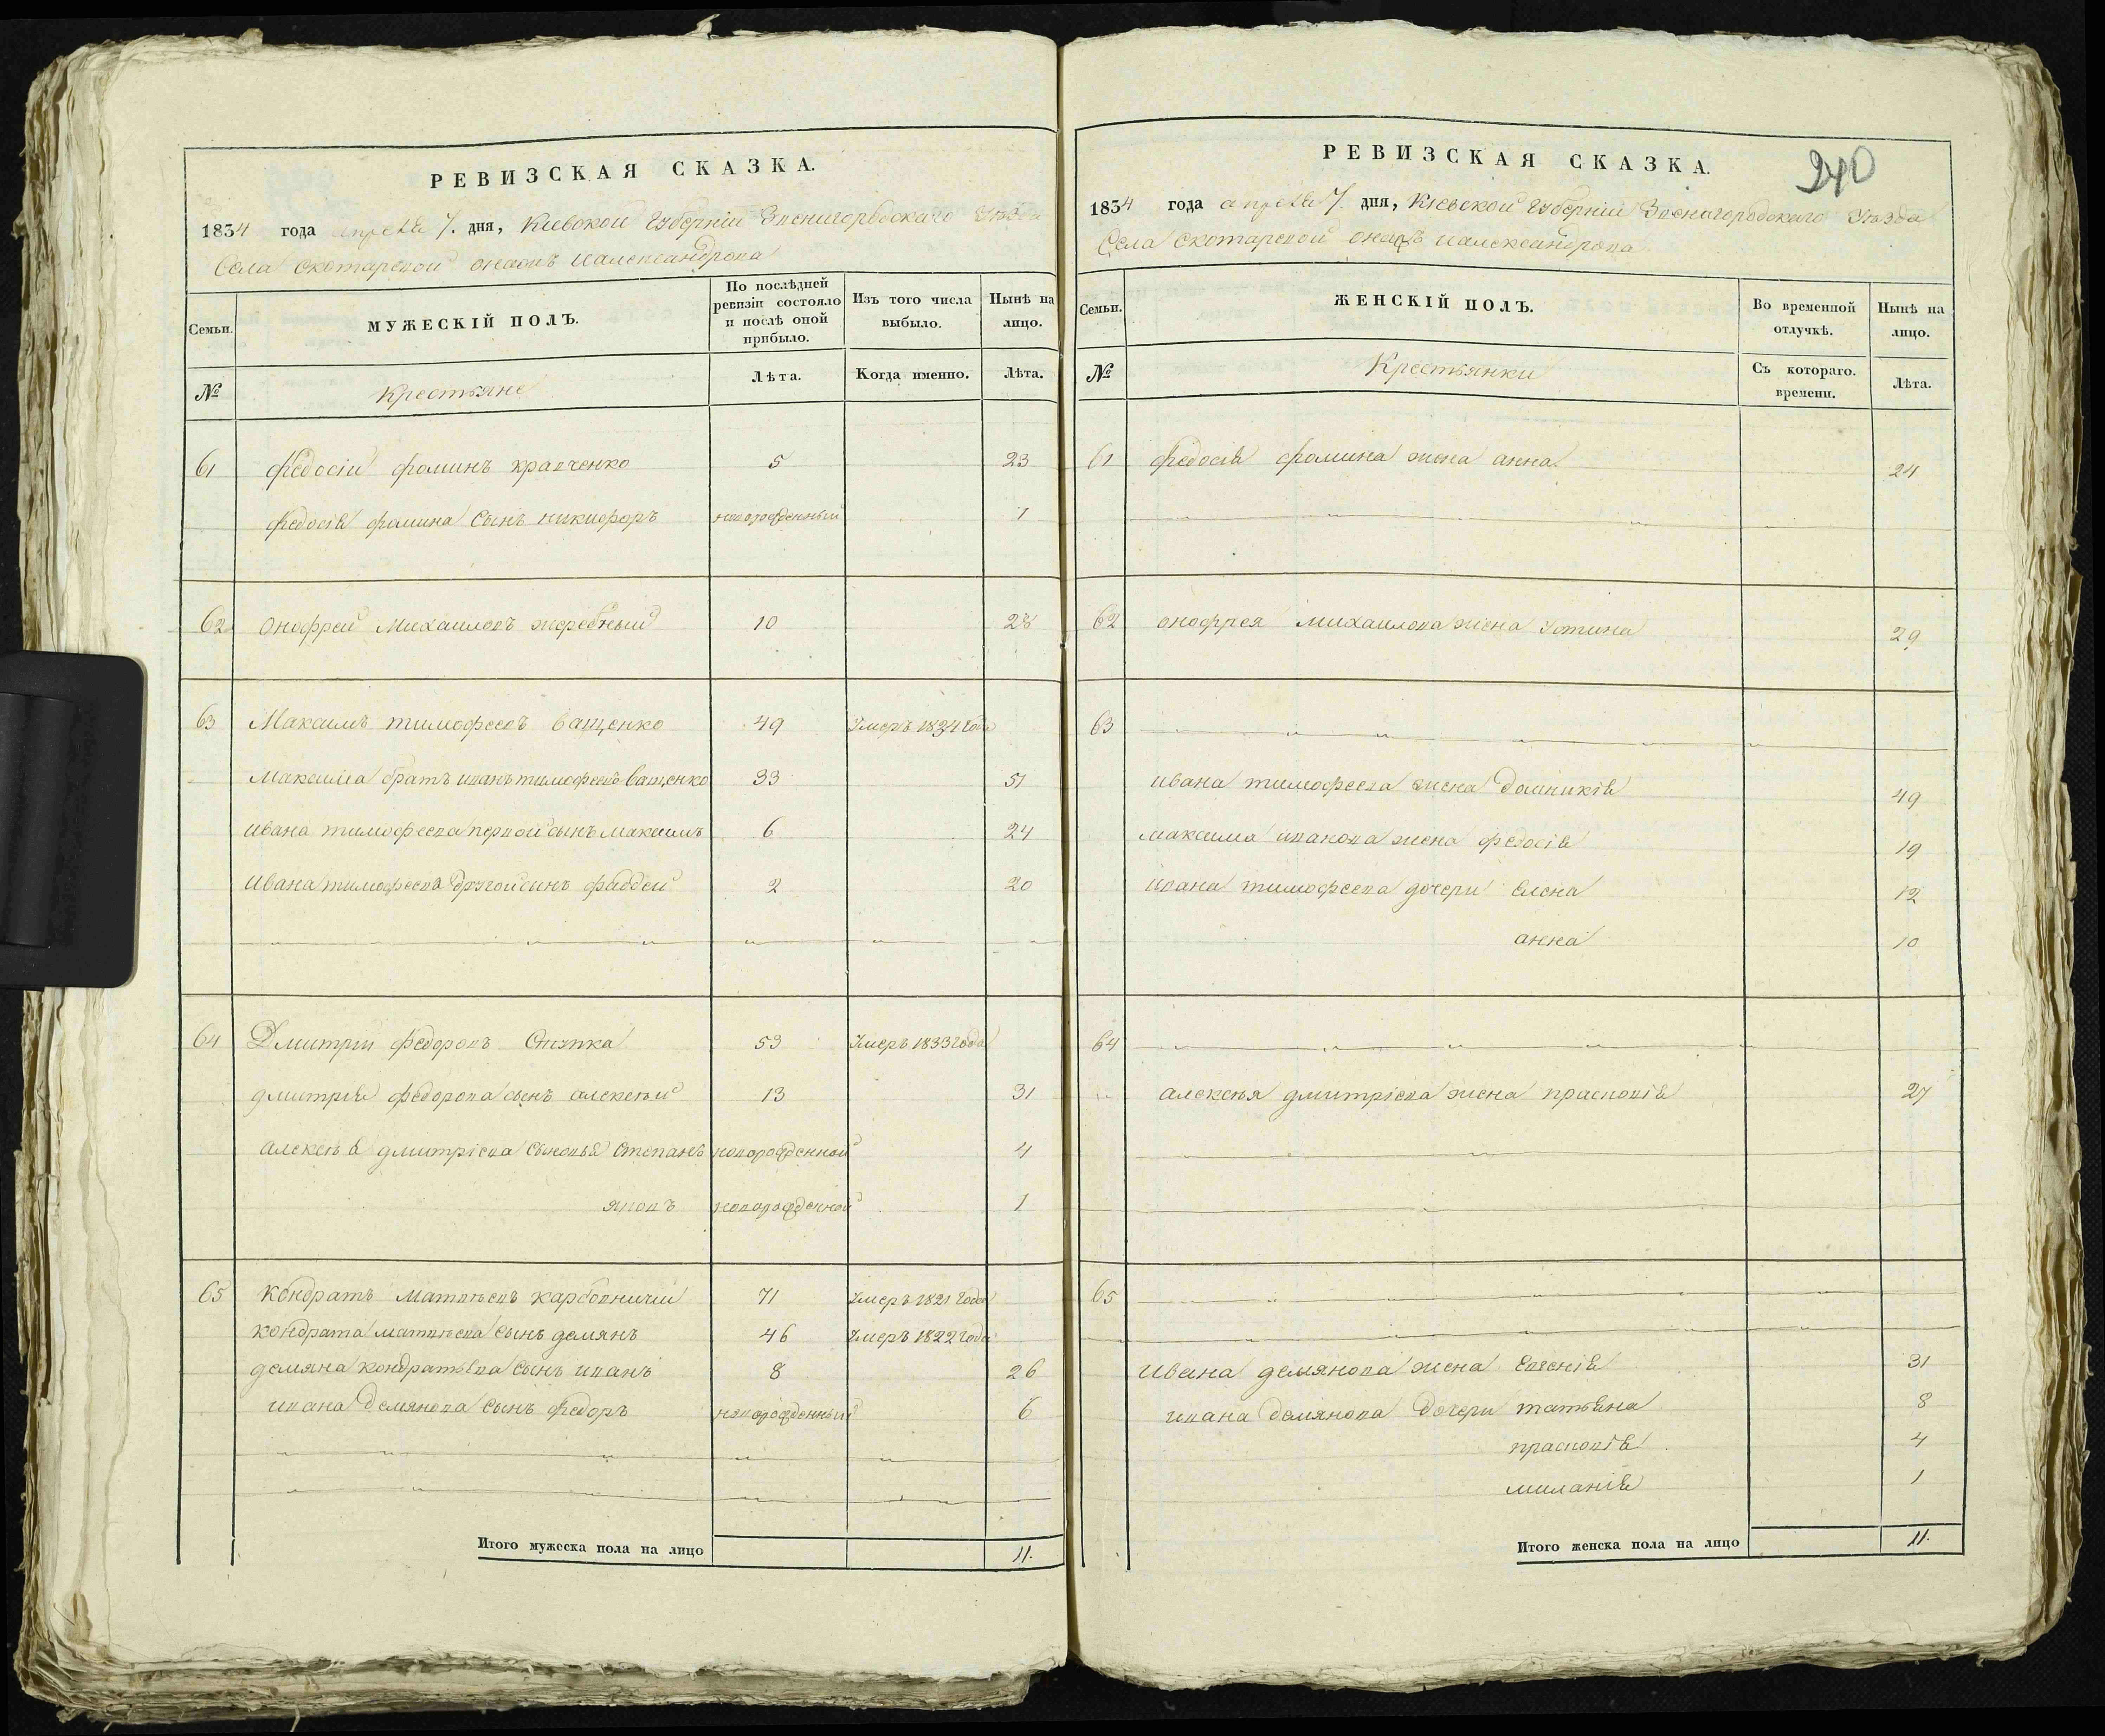 РЕВИЗСКАЯ СКАЗКА.
1834 года апреля 7. дня, Киевской Губерніи Звенигородскаго Уѣзда
Села скотаревой иалександрова
Семьи. МУЖЕСКІЙ ПОЛЪ. По послѣдней ревизіи состояло и послѣ оной прибыло. Изъ того числа выбыло. Нынѣ на лицо.
№ Крестьяне Лѣта. Когда именно. Лѣта.
61 федосій фоминъ кравченко 5 23
федосія фомина сынъ никифоръ новорожденный 1
62 онофрей Михаиловъ жеребный 10 28
63 Максимъ тимофеевъ ващенко 49 Умеръ 1834 года
максима братъ иванъ тимофеевъ ващенко 33 51
ивана тимофеева первой сынъ максимъ 6 24
ивана тимофеева другой сынъ фаддей 2 20
64 Дмитрій федоровъ 53 Умеръ 1833 года
дмитрія федорова сынъ алексѣй 13 31
алексѣя дмитріева сыновья степанъ новорожденной 4
яковъ новорожденной 1
65 кондратъ матвѣевъ карбовничій 71 Умеръ 1821 года
кондрата матвѣева сынъ демянъ 46 Умеръ 1822 года
демяна кондратьева сынъ иванъ 8 26
ивана демянова сынъ федоръ новорожденный 6
Итого мужеска пола на лицо 11.
РЕВИЗСКАЯ СКАЗКА. 240
1834 года апреля 7. дня, Кіевской Губерніи Звенигородскаго Уѣзда
Села скотаревой иалександрова
Семьи. ЖЕНСКІЙ ПОЛЪ. Во временной отлучкѣ. Нынѣ на лицо.
№ Крестьянки Съ котораго. времени. Лѣта.
61 федосія фомина жена анна 24
62 онофрея михаилова жена устина 29
63
ивана тимофеева жена домникія 49
максима иванова жена федосія 19
ивана тимофеева дочери елена 12
анна 10
64
алексѣя дмитріева жена прасковія 27
65
ивана демянова жена евгенія 31
ивана демянова дочери татьяна 8
прасковія 4
миланія 1
Итого женска пола на лицо 11.